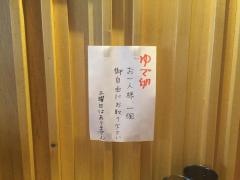 ゆで卵
お一人様 一個
御自由にお取り下さい
土曜日はありません